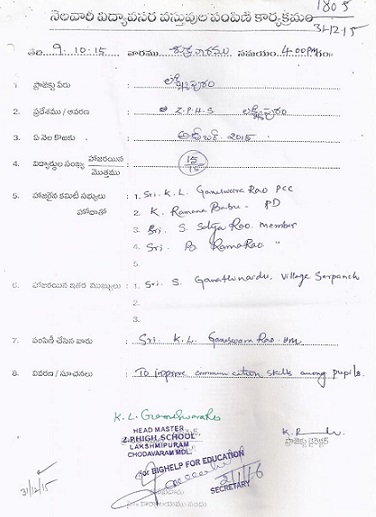 1805
31/12/15
నెలవారీ విద్యావసర వస్తువుల పంపిణీ కార్యక్రమం
తేది 9.10.15 వారము శుక్రవారము సమయం 4.00PM గం॥
1. ప్రాజెక్టు పేరు : లక్ష్మీపురం
2. ప్రదేశము / ఆవరణ : Z.P.H.S లక్ష్మీపురం
3. ఏ నెల కొఱకు : అక్టోబర్ 2015
4. విద్యార్థుల సంఖ్య హాజరయిన / మొత్తము : 15/15
5. హాజరైన కమిటీ సభ్యులు : 1. Sri. K. L. Gameswara Rao PCC
హోదాతో 2. K. Ramana Babu. PD
3. Sri. S. Satya Rao. Member
4. Sri. B RamaRao "
5.
6. హాజరయిన ఇతర ముఖ్యులు : 1. Sri S. Ganathinaidu, Village Sarpanch
2.
3.
7. పంపిణీ చేసిన వారు : Sri. K. L. Gameswara Rao. HM
8. వివరణ / సూచనలు : To improve communication skills among pupils.
K. L. Gameswara Rao
HEAD MASTER
Z.P.HIGH SCHOOL
LAKSHMIPURAM
CHODAVARAM MDL.
ప్రాజెక్టు డైరెక్టర్
For BIGHELP FOR EDUCATION
SECRETARY
31/12/15